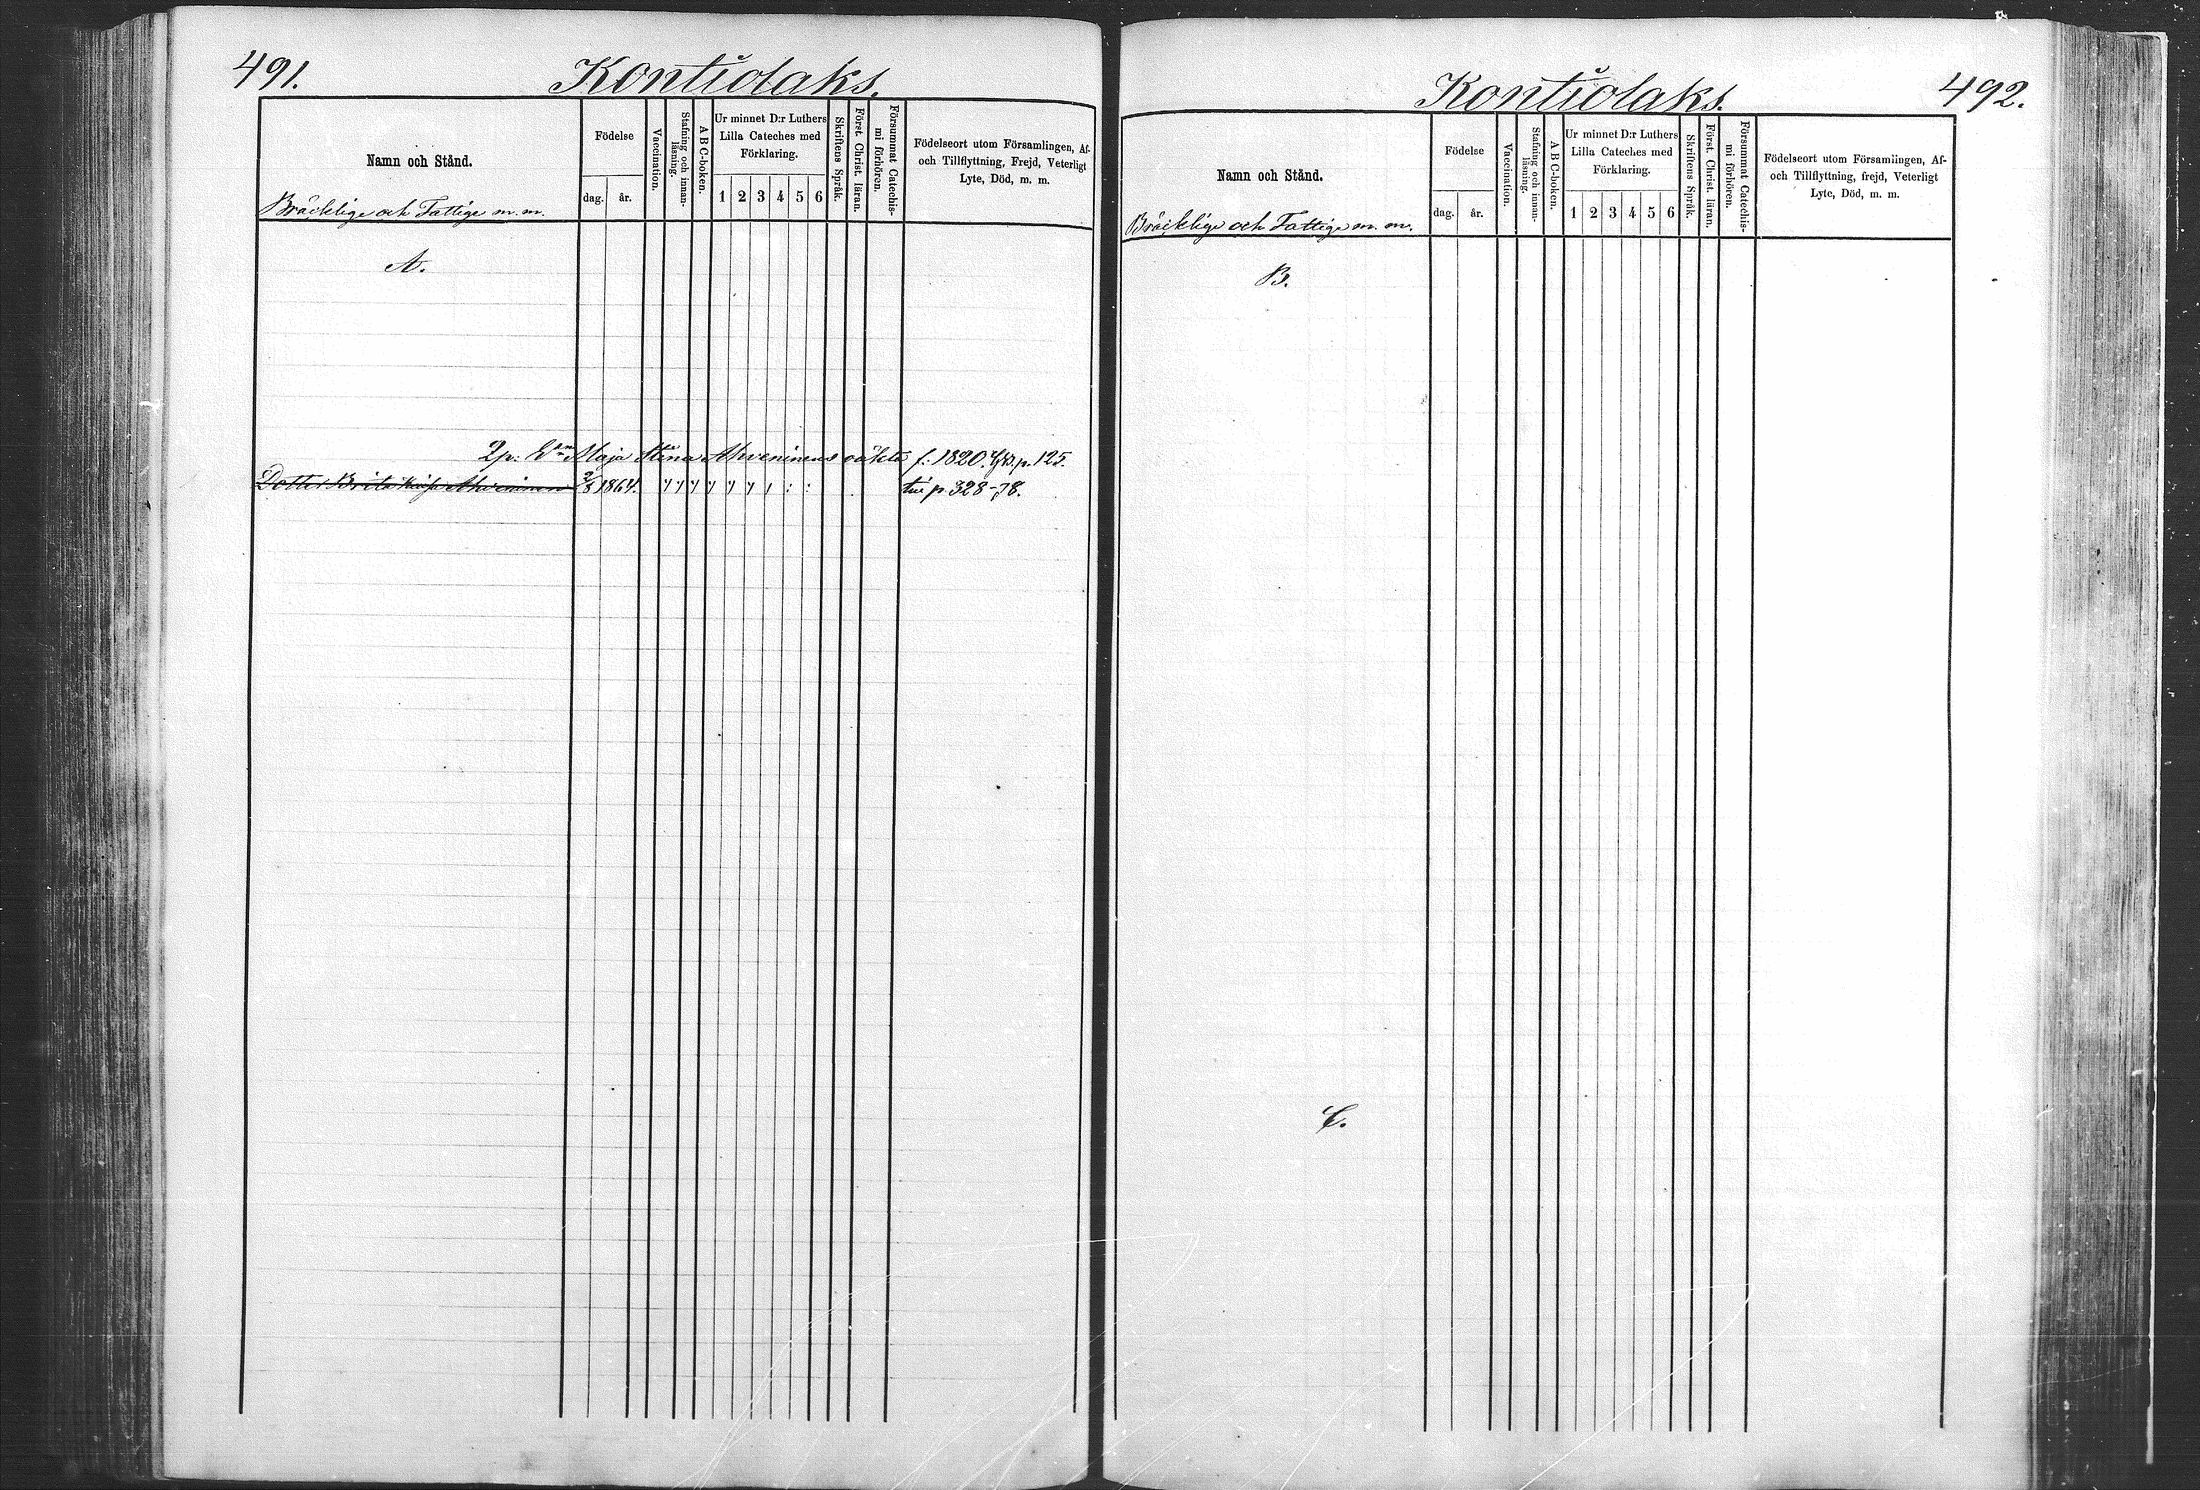 491.
Kontiolaks.
Namn och Stånd.
Bräcklige och Fattige m. m.
Födelse
dag. år.
Vaccination.
Stafning och innanläsning.
A B C-boken.
Ur minnet D:r Luthers
Lilla Cateches med
Förklaring.
1 2 3 4 5 6
Skriftens Språk.
Först. Christ. läran.
Försummat Catechismi förhören.
Födelseort utom Församlingen, Af-
och Tillflyttning, Frejd, Veterligt
Lyte, Död, m. m.
A.
2 p: Maja Stina Ahveninens oäkta f: 1820. p. 125.
Dotter Brita Kajsa Ahveninen 2/8 1864. till p. 328 -78.
Kontiolaks.
492.
Namn och Stånd.
Bräcklige och Fattige m. m.
Födelse
dag. år.
Vaccination.
Stafning och innanläsning.
A B C-boken.
Ur minnet D:r Luthers
Lilla Cateches med
Förklaring.
1 2 3 4 5 6
Skriftens Språk.
Först. Christ. läran.
Försummat Catechismi förhören.
Födelseort utom Församlingen, Af-
och Tillflyttning, frejd, Veterligt
Lyte, Död, m. m.
B.
C.